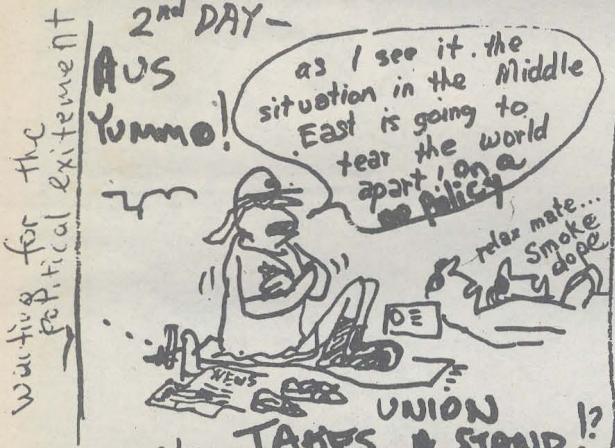 Waiting for the
political exitement
2nd DAY -
AUS
YUMMO!
as I see it. the
situation in the Middle
East is going to
tear the world
apart! On a
no policy
relax mate...
Smoke
dope
NEWS
UNION
TAKES A STAND!?